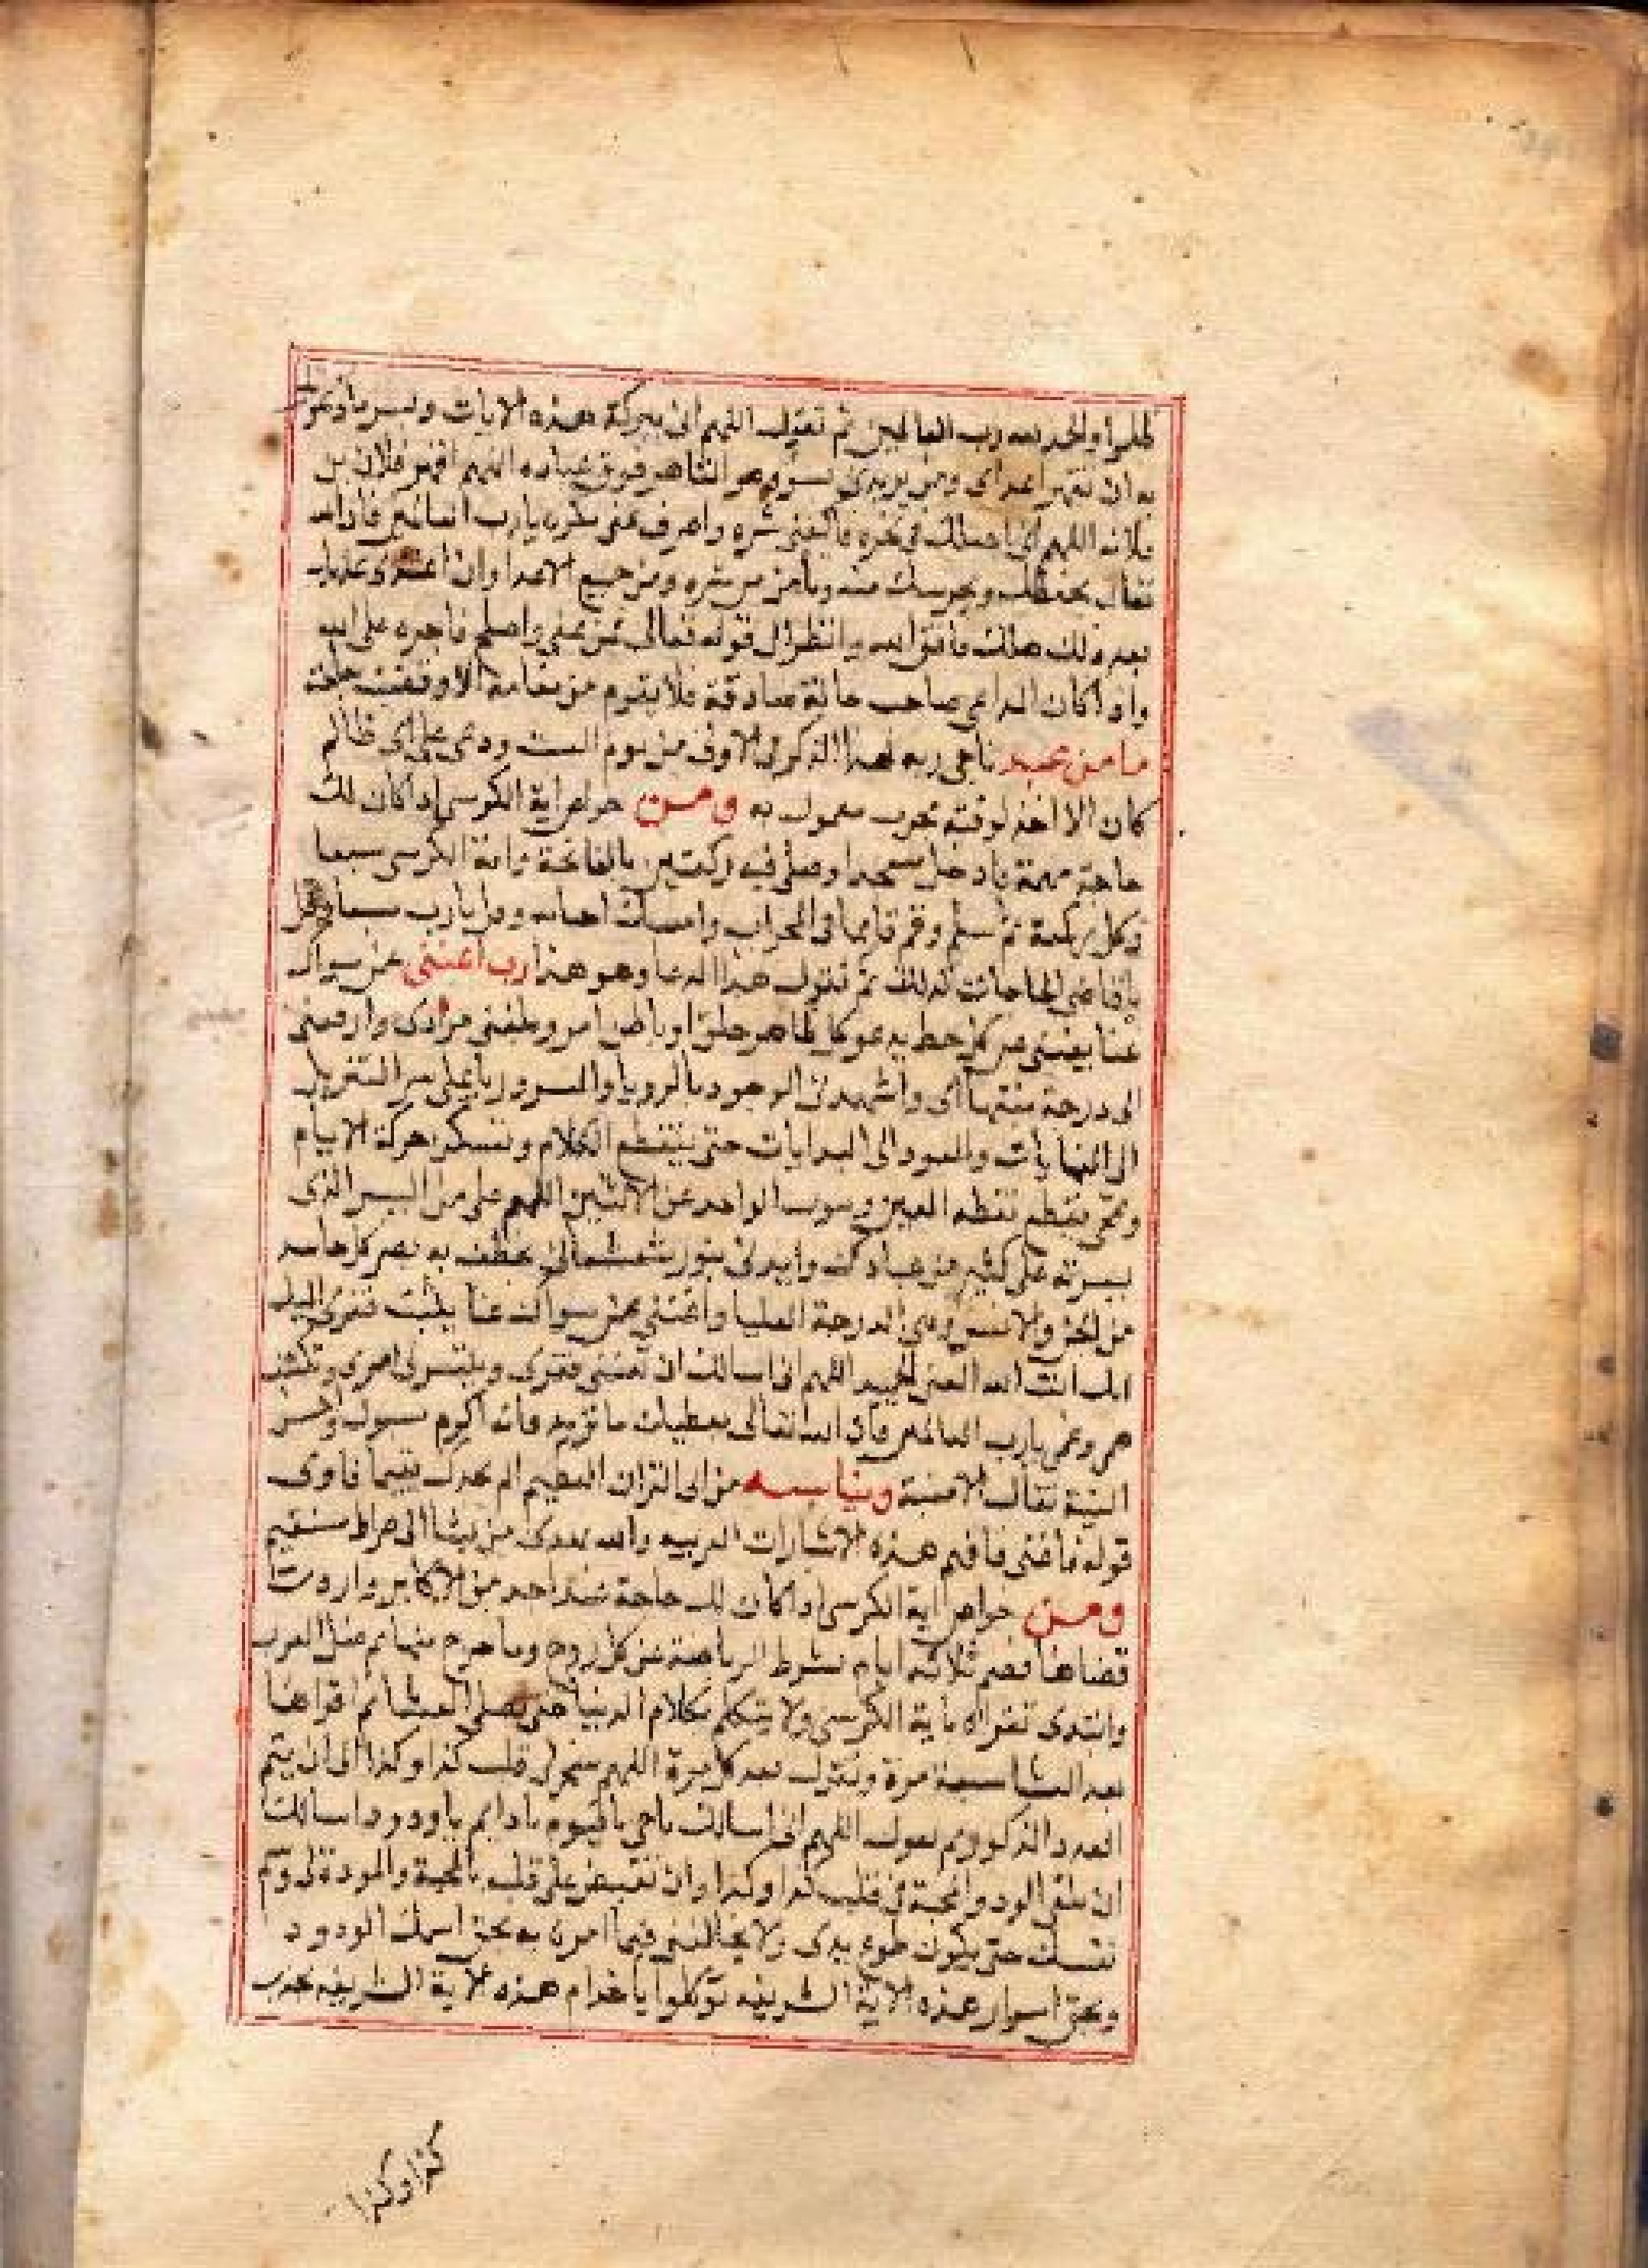 ظلموا والحمد لله رب العالمين ثم تقول اللهم انى ببركة هذه الايات وبسر ما دعوتك
به ان تقهر اعداى ومن يريدنى بسوء وهو القاهر فوق عباده اللهم اقهر فلان بن
فلانه اللهم انى اجعلك فى نحره فاكفنى شره واصرف عنى مكره يارب العالمين فان الله
تعالى يحفظك ويحرسك منه وتأمن من شره ومن جميع الاعدا وان اعتدى عليك
بعد ذلك هلك فاتق الله وانظر الى قوله تعالى فمن عفى واصلح فاجره على الله
واذا كان الداعى صاحب حالة صادقة فلا يقوم من مقامه الا وقضيت حاجته
ما من عبد ناجى ربه بهذا الذكر فى الاوفى من يوم السبت ودعى على اى ظالم
كان الا اخذ لوقته مجرب معمول به ومن خواص اية الكرسى اذا كان لك
حاجة مهمة فادخل مسجدا وصلى فيه ركعتين بالفاتحة واية الكرسى سبعا
فى كل ركعة ثم سلم وقم قايما فى المحراب وقل يارب سبعا وقل
يا قاضى الحاجات كذلك ثم تقول هذا الدعا وهو هذا رب اغننى عن سواك
غنا يغننى عن كل حظ يدعو كل ظاهر خلق او باطن امر وبلغنى مرادى وارفعنى
الى درجة منتهاى واشهدنى الوجود بالرويا والسور على سر التنزيل
الى النهايات والعود الى البدايات حتى ينقطع الكلام وتسكن حركة الايام
وتمحى نقطه العين وسوب الواحد عن الاثنين اللهم على من اليسر الذى
يسرته على كثير من عبادك وايدنى بنور شعشعانى يخطف به بصر كل حاسد
من الجن والانس الدرجة العليا واغننى عن سواك غنا يثبت فقرى اليك
انك انت الله الغنى الحميد اللهم انى اسالك ان تغنى فقرى وييسر لى امرى وتكشف
همى وغمى يارب العالمين فان الله تعالى يعطيك ما تريد فانه اكرم مسول واحسن
النية تقال الامنية ويناسبه من اى القران العظيم الم يجدك يتيما فاوى
قوله فاغنى فافهم هذه الاشارات الغريبه والله يهدى من يشا الى صراط مستقيم
ومن خواص اية الكرسى اذا كان لك حاجة عند احد من الاكابر واردت
قضاها فصم ثلاثه ايام بشرط الرياضة عن كل روح وما خرج منها ثم عند الغروب
وابتدى تقراه باية الكرسى ولا يتكلم بكلام الدنيا حتى يصلى العشا ثم اقراها
بعد العشا سبعة مرة وتقول بعد كل مرة اللهم سخر لى قلب كذا وكذا الى ان يتم
العدد المذكور ثم تقول اللهم انى اسالك ياحى ياقيوم يادايم ياودود اسالك
ان تلقى الود والمحبة فى قلب كذا وكذا وان تقبض على قلبه بالمحبة والمودة لى
نفسك حتى يكون طوع يدى ولا يخالفنى فيما امره به بحق اسمك الودود
وبحق اسرار هذه الاية الشريفه توكلوا ياخدام هذه الاية الشريفه بجذب
كذا وكذا